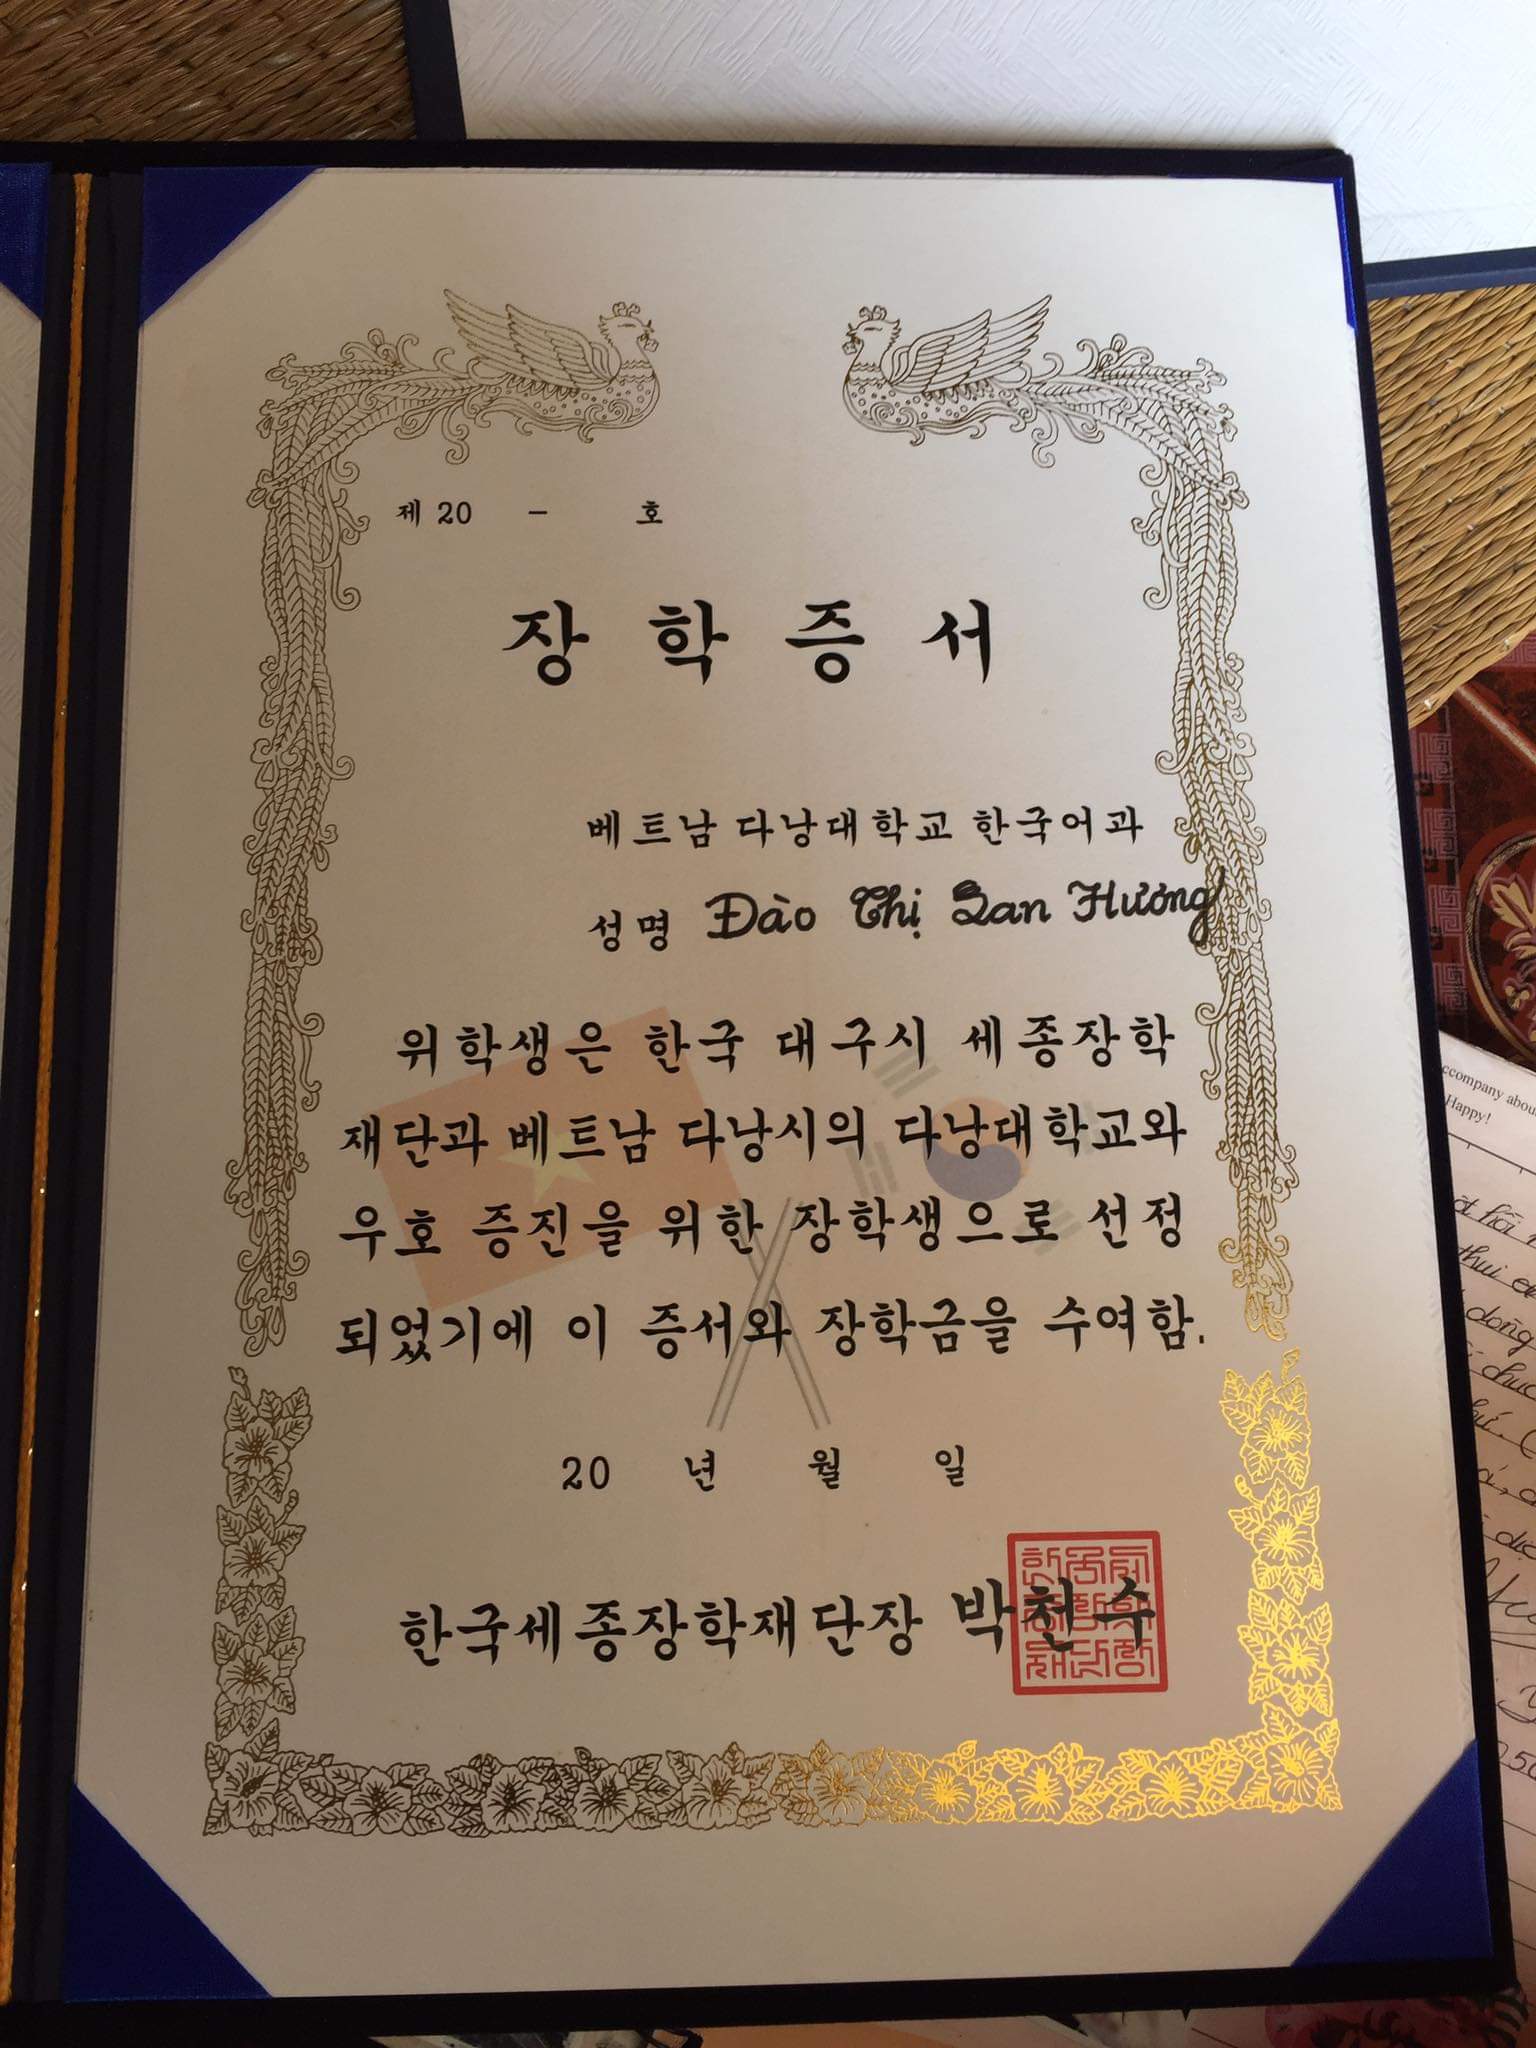 제 20 - 호
장 학 증 서
베트남 다낭대학교 한국어과
성명 Đào Thị Lan Hương
위학생은 한국 대구시 세종장학
재단과 베트남 다낭시의 다낭대학교와
우호 증진을 위한 장학생으로 선정
되었기에 이 증서와 장학금을 수여함.
20 년 월 일
한국세종장학재단장 박천수
ccompany abou
Happy!